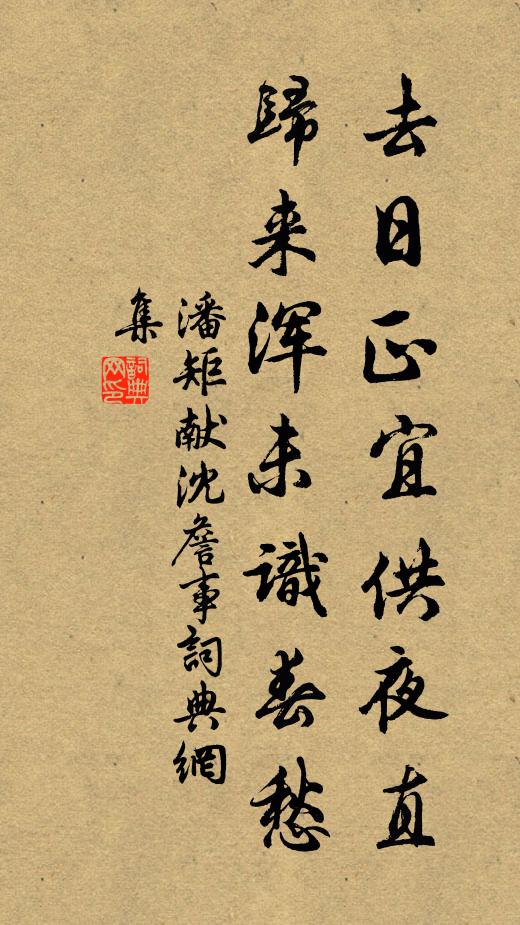 去日正宜供夜直
歸来渾未識春愁
潘矩献沈詹事詞典網
集
詞典
网印